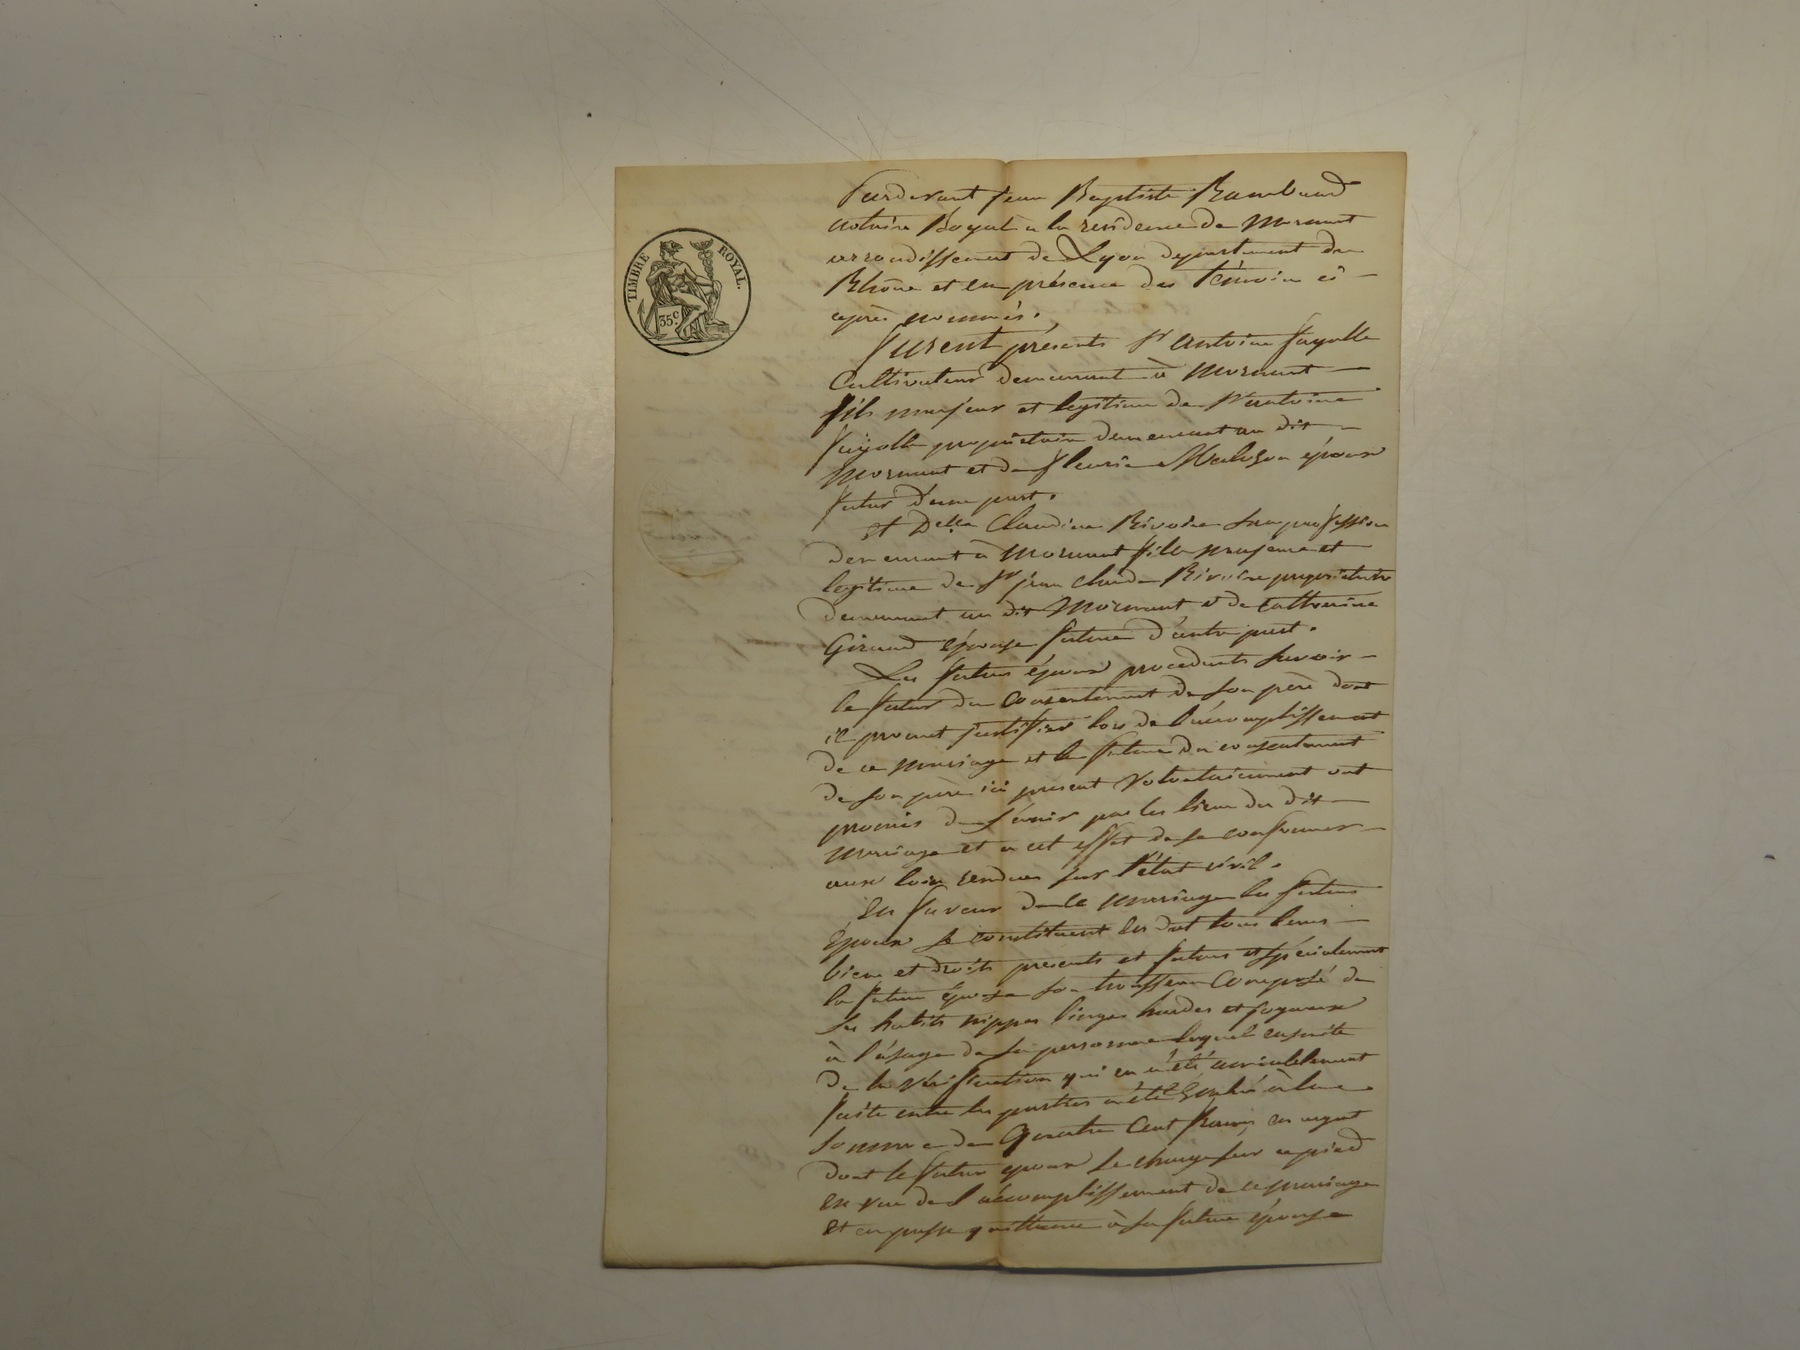 TIMBRE ROYAL.
35c
Pardevant jean Baptiste Rambaud
notaire Royal à la residence de Mornant
arrondissement de Lyon departement du
Rhône et en présence des témoins ci-
après nommés.
Furent présents Sr antoine fayolle
Cultivateur demeurant à Mornant
fils majeur et legitime de Sr antoine
fayolle proprietaire demeurant au dit
Mornant et de fleurie époux
futur d'une part.
Et Delle Claudine Rivoire sans profession
demeurant à Mornant fille majeure et
legitime de Sr jean claude Rivoire proprietaire
demeurant au dit Mornant et de Catherine
Giraud épouse future d'autre part.
Les futurs époux procedants savoir
le futur du consentement de son père dont
il promet justifier lors de l'accomplissement
de ce mariage et la future du consentement
de son père ici présent Volontairement ont
promis de s'unir par les liens du dit
mariage et à cet effet de se conformer
aux loix rendues sur l'état civil.
En faveur de ce mariage les futurs
époux se constituent en dot tous leurs
biens et droits présents et futurs et spécialement
la future épouse son trousseau Composé de
ses habits nippes linges hardes et joyaux
à l'usage de sa personne lequel ensuite
de la vérification qui en a été amiablement
faite entre les parties a été évalué à la
somme de Quatre Cent francs en argent
dont le futur epoux se charge sur ce pied
en vue de l'accomplissement de ce mariage
et en passe quittance à sa future épouse